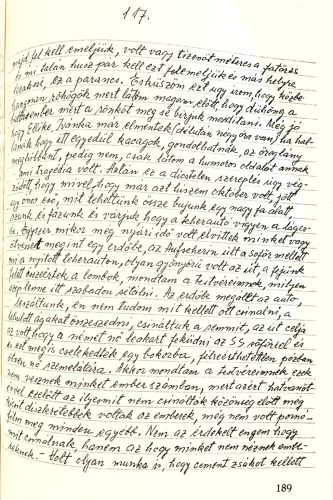 117.
majd fel kell emeljük, volt vagy tizenöt méteres a farönk
és mi talán husz pár kell ezt felemeljük és más helyre
tegyük, ez a parancs. Esküszöm ezt ugy irom, hogy közbe
hangosan röhögök mert látom magam előtt, hogy dühöng a
mert a rönköt még se birjuk mozditani. Még jó
hogy Elike, Ivánka már elmentek (délután négy óra van) ha hal-
hogy itt egyedül kacagok, gondolhatnák, az öreglány
meghibbant, pedig nem, csak látom a humoros oldalát annak
mi tragédia volt. Talán ez a dicstelen szereplés ugy vég-
ződött, hogy mivel, hogy már azt hiszem október volt, jött
egy ónos eső, mit tehettünk össze bujunk egy nagy fa alatt,
ázunk és fázunk és várjuk hogy a teherautó vigyen a láger-
be. Egyszer mikor még nyári idő volt, elvittek minket vagy
ötvenet megint egy erdőbe, az Aufseherin ült a sofőr mellett
mi a nyitott teherautón, olyan gyönyörü volt az út, a fejünk
felett összeértek a lombok, mondtam a testvéreimnek, milyen
szép lenne itt szabadon sétálni. Az erdőbe megállt az autó,
leszálltunk, én nem tudom mit kellett ott csinálni, a
lehullott ágakat összeszedni, csináltuk a semmit, az út célja
az volt, hogy a német nő leakart feküdni az SS sofőrrel és
ezt meg is cselekedték egy bokorba, félreérthetetlen pózban
ötven nő szemeláttára. Akkor mondtam a testvéreimnek ezek
nem néznek minket ember számban, mert azért hatvanöt
évvel ezelőtt az ilyesmit nem csinálták közönség előtt meg
diszkrétebbek voltak az emberek, még nem volt pornó-
film meg minden egyebb. Nem az érdekelt engem hogy
mit csinálnak, hanem az hogy minket nem néznek embe-
reknek. - Volt olyan munka is, hogy cement zsákot kellett
189